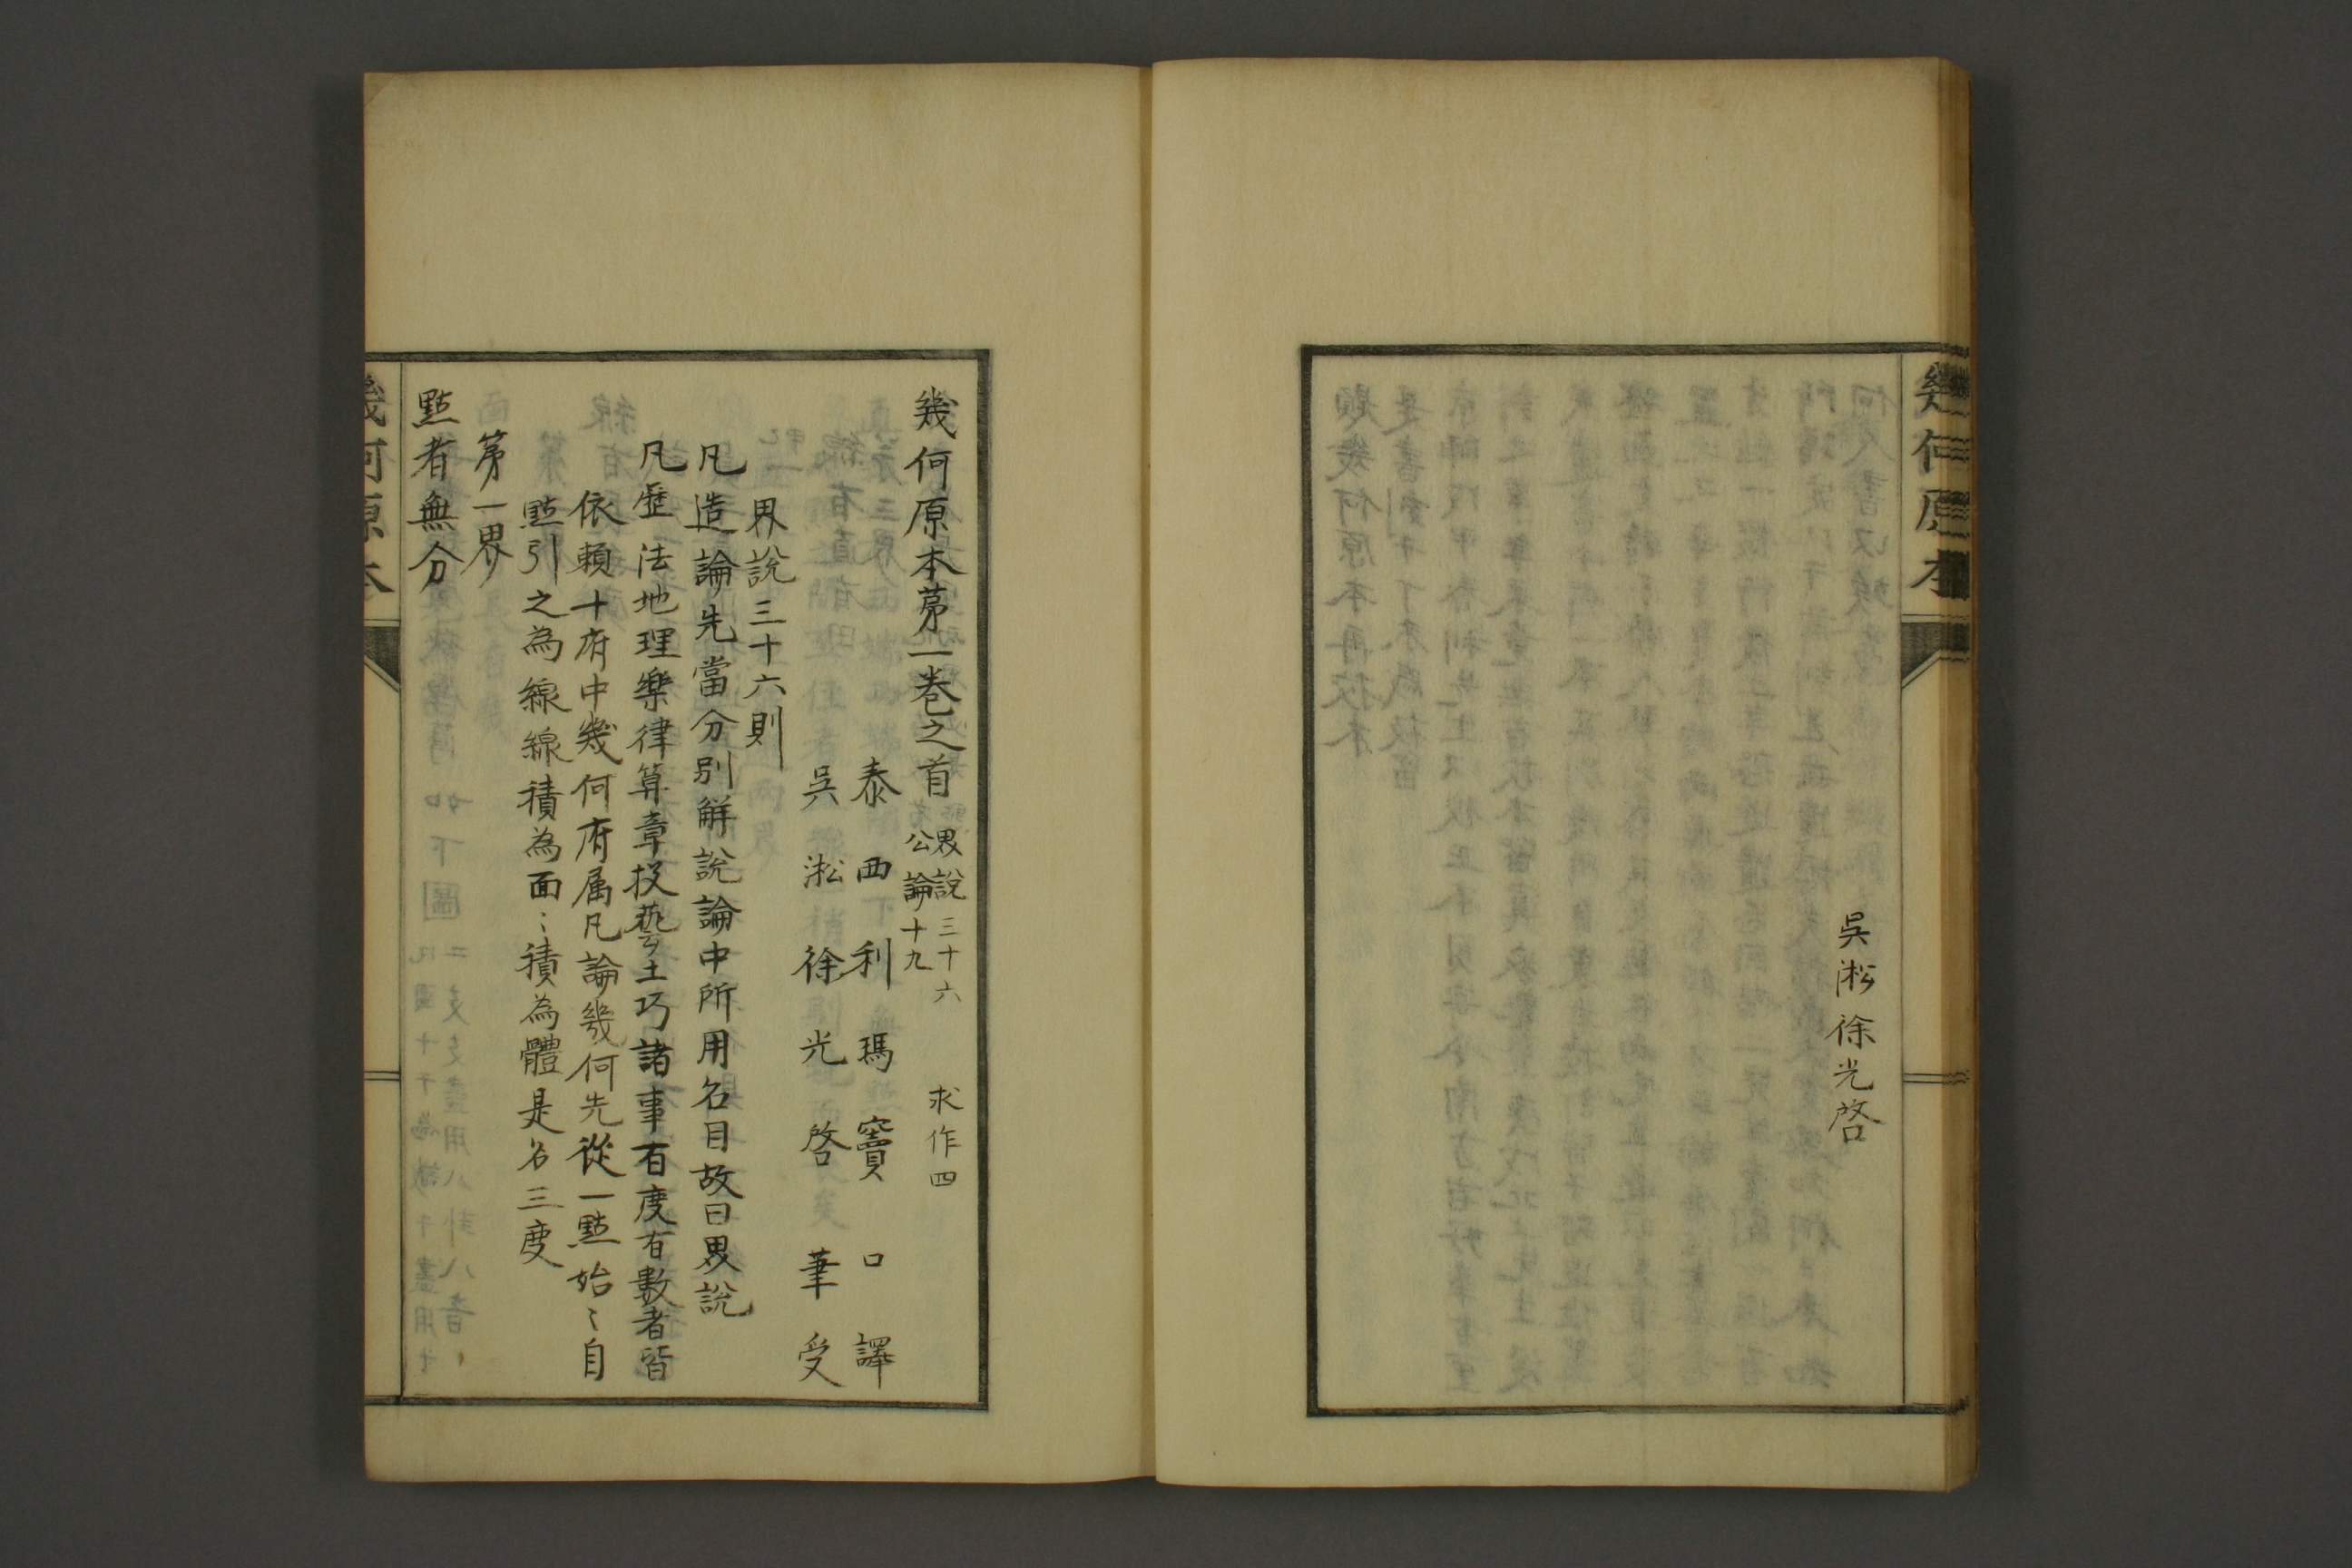 幾何原本
吳淞徐光啓
幾何原本苐一巻之首
界說三十六
公論十九
求作四
泰西利瑪竇口譯
吳淞徐光啓筆受
界說三十六則
凡造論先當分别解說論中所用名目故曰界說
凡歷法地理樂律算章技藝工巧諸事有度有數者皆
依賴十府中幾何府属凡論幾何先從一點始〻自
點引之為線線積為面〻積為體是名三度
苐一界
點者無分
幾何原本